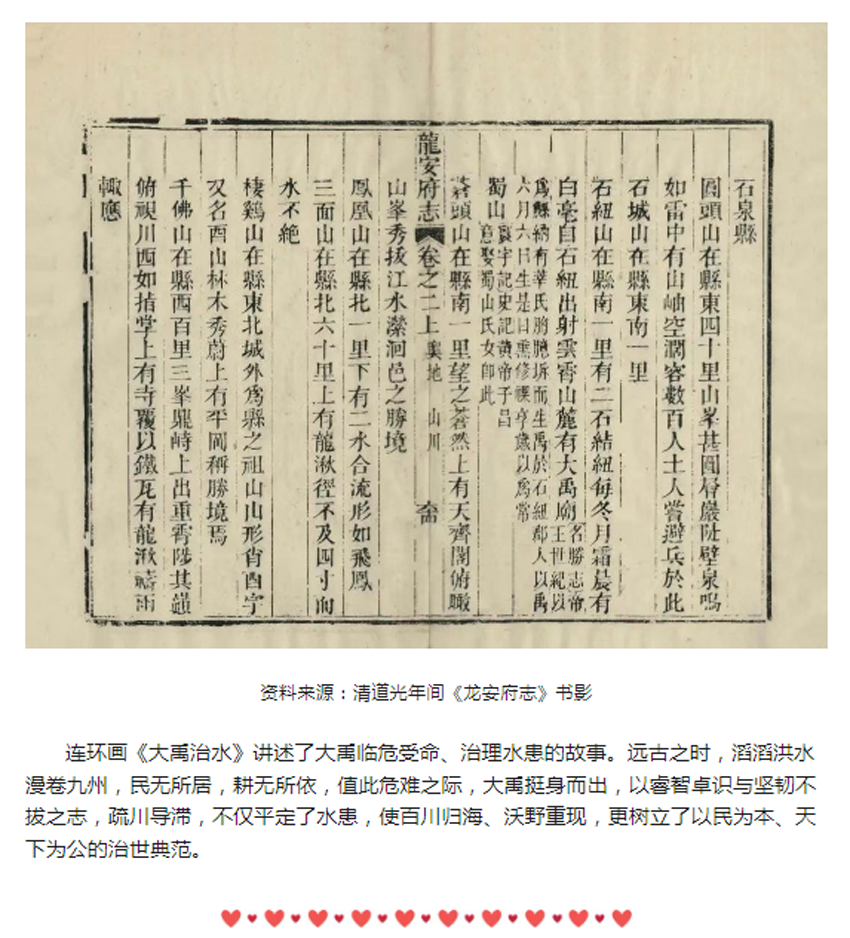 石泉縣
圓頭山在縣東四十里山峯甚圓層巖陡壁泉鳴
如雷中有山岫空濶容數百人土人嘗避兵於此
石城山在縣東南一里
石紐山在縣南一里有二石結紐每冬月霜晨有
白毫自石紐出射雲霄山麓有大禹廟名勝志帝
王世紀以
爲鯀納有莘氏胸臆坼而生禹於石紐郡人以禹
六月六日生是日熏修祼享歲以爲常
蜀山寰宇記史記黃帝子昌
意娶蜀山氏女卽此
蒼頭山在縣南一里望之蒼然上有天齊閣俯瞰
龍安府志 卷之二上 輿地 山川
山峯秀拔江水瀠洄邑之勝境
鳳凰山在縣北一里下有二水合流形如飛鳳
三面山在縣北六十里上有龍湫徑不及四寸而
水不絶
棲鷄山在縣東北城外爲縣之祖山山形肖酉字
又名酉山林木秀蔚上有平岡稱勝境焉
千佛山在縣西百里三峯鼎峙上出重霄陟其巔
俯視川西如指掌上有寺覆以鐵瓦有龍湫禱雨
輙應
资料来源：清道光年间《龙安府志》书影
连环画《大禹治水》讲述了大禹临危受命、治理水患的故事。远古之时，滔滔洪水
漫卷九州，民无所居，耕无所依，值此危难之际，大禹挺身而出，以睿智卓识与坚韧不
拔之志，疏川导滞，不仅平定了水患，使百川归海、沃野重现，更树立了以民为本、天
下为公的治世典范。